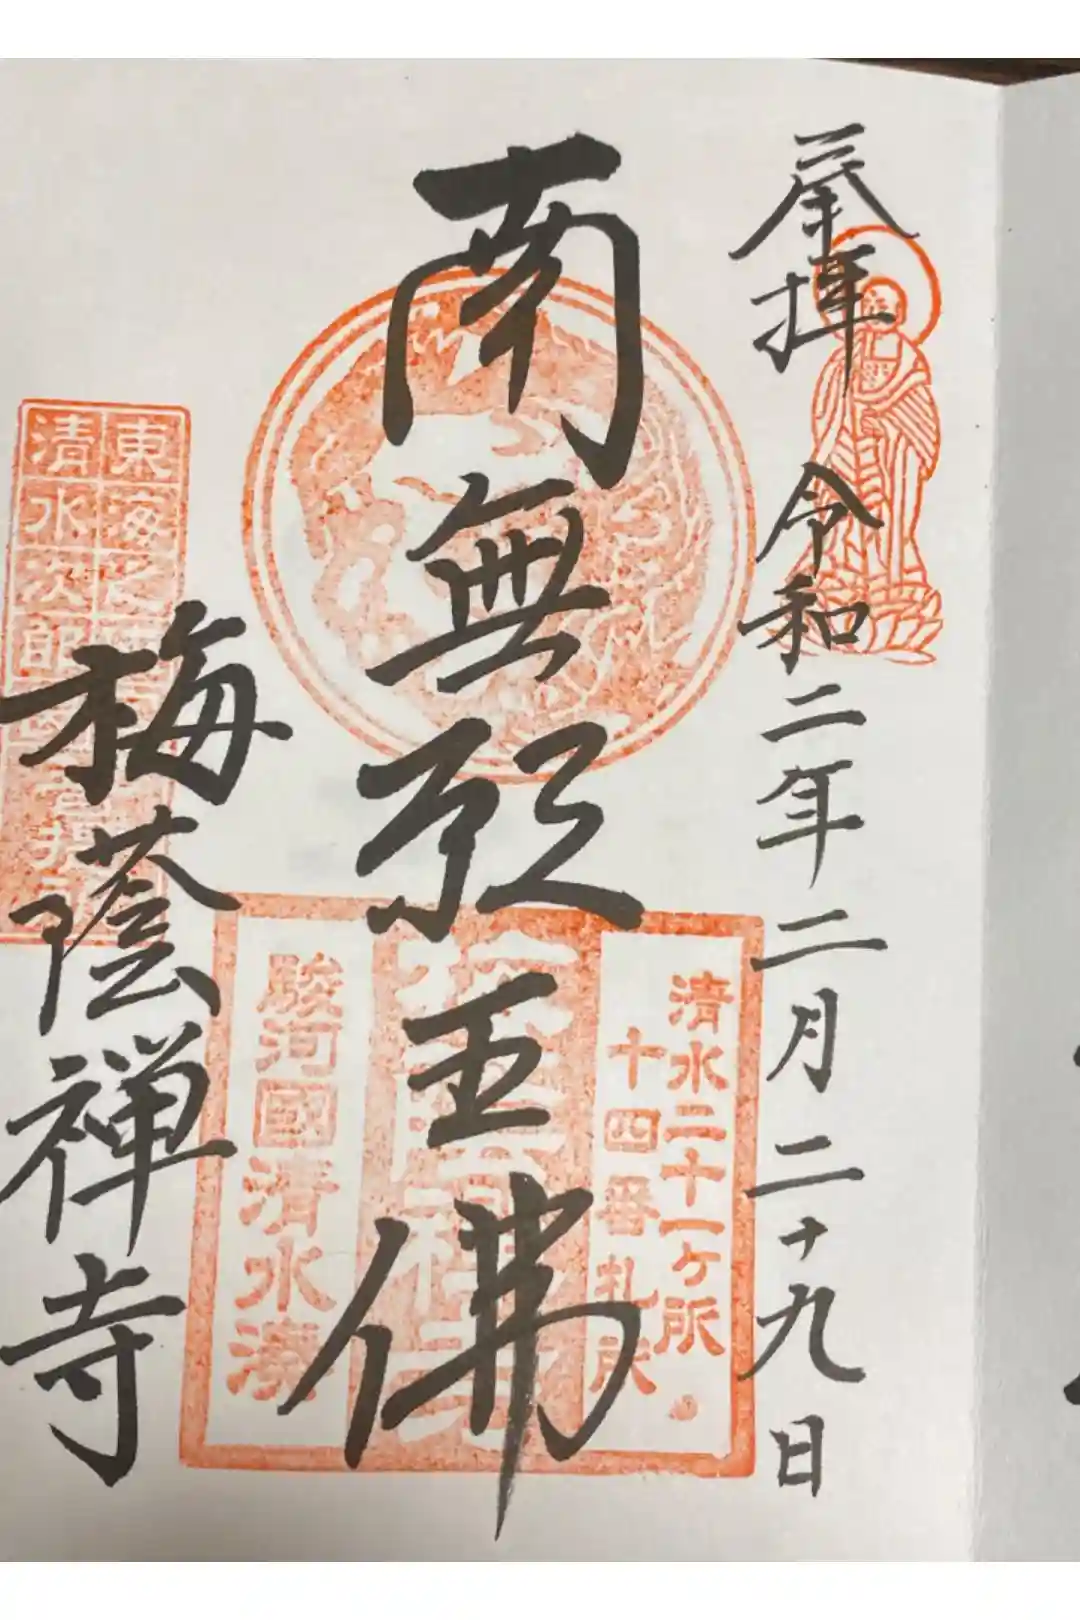 奉拝
令和二年二月二十九日
南無願王佛
清水二十一ケ所
十四番札所
駿河國清水湊
梅蔭禅寺
東海
清水次郎